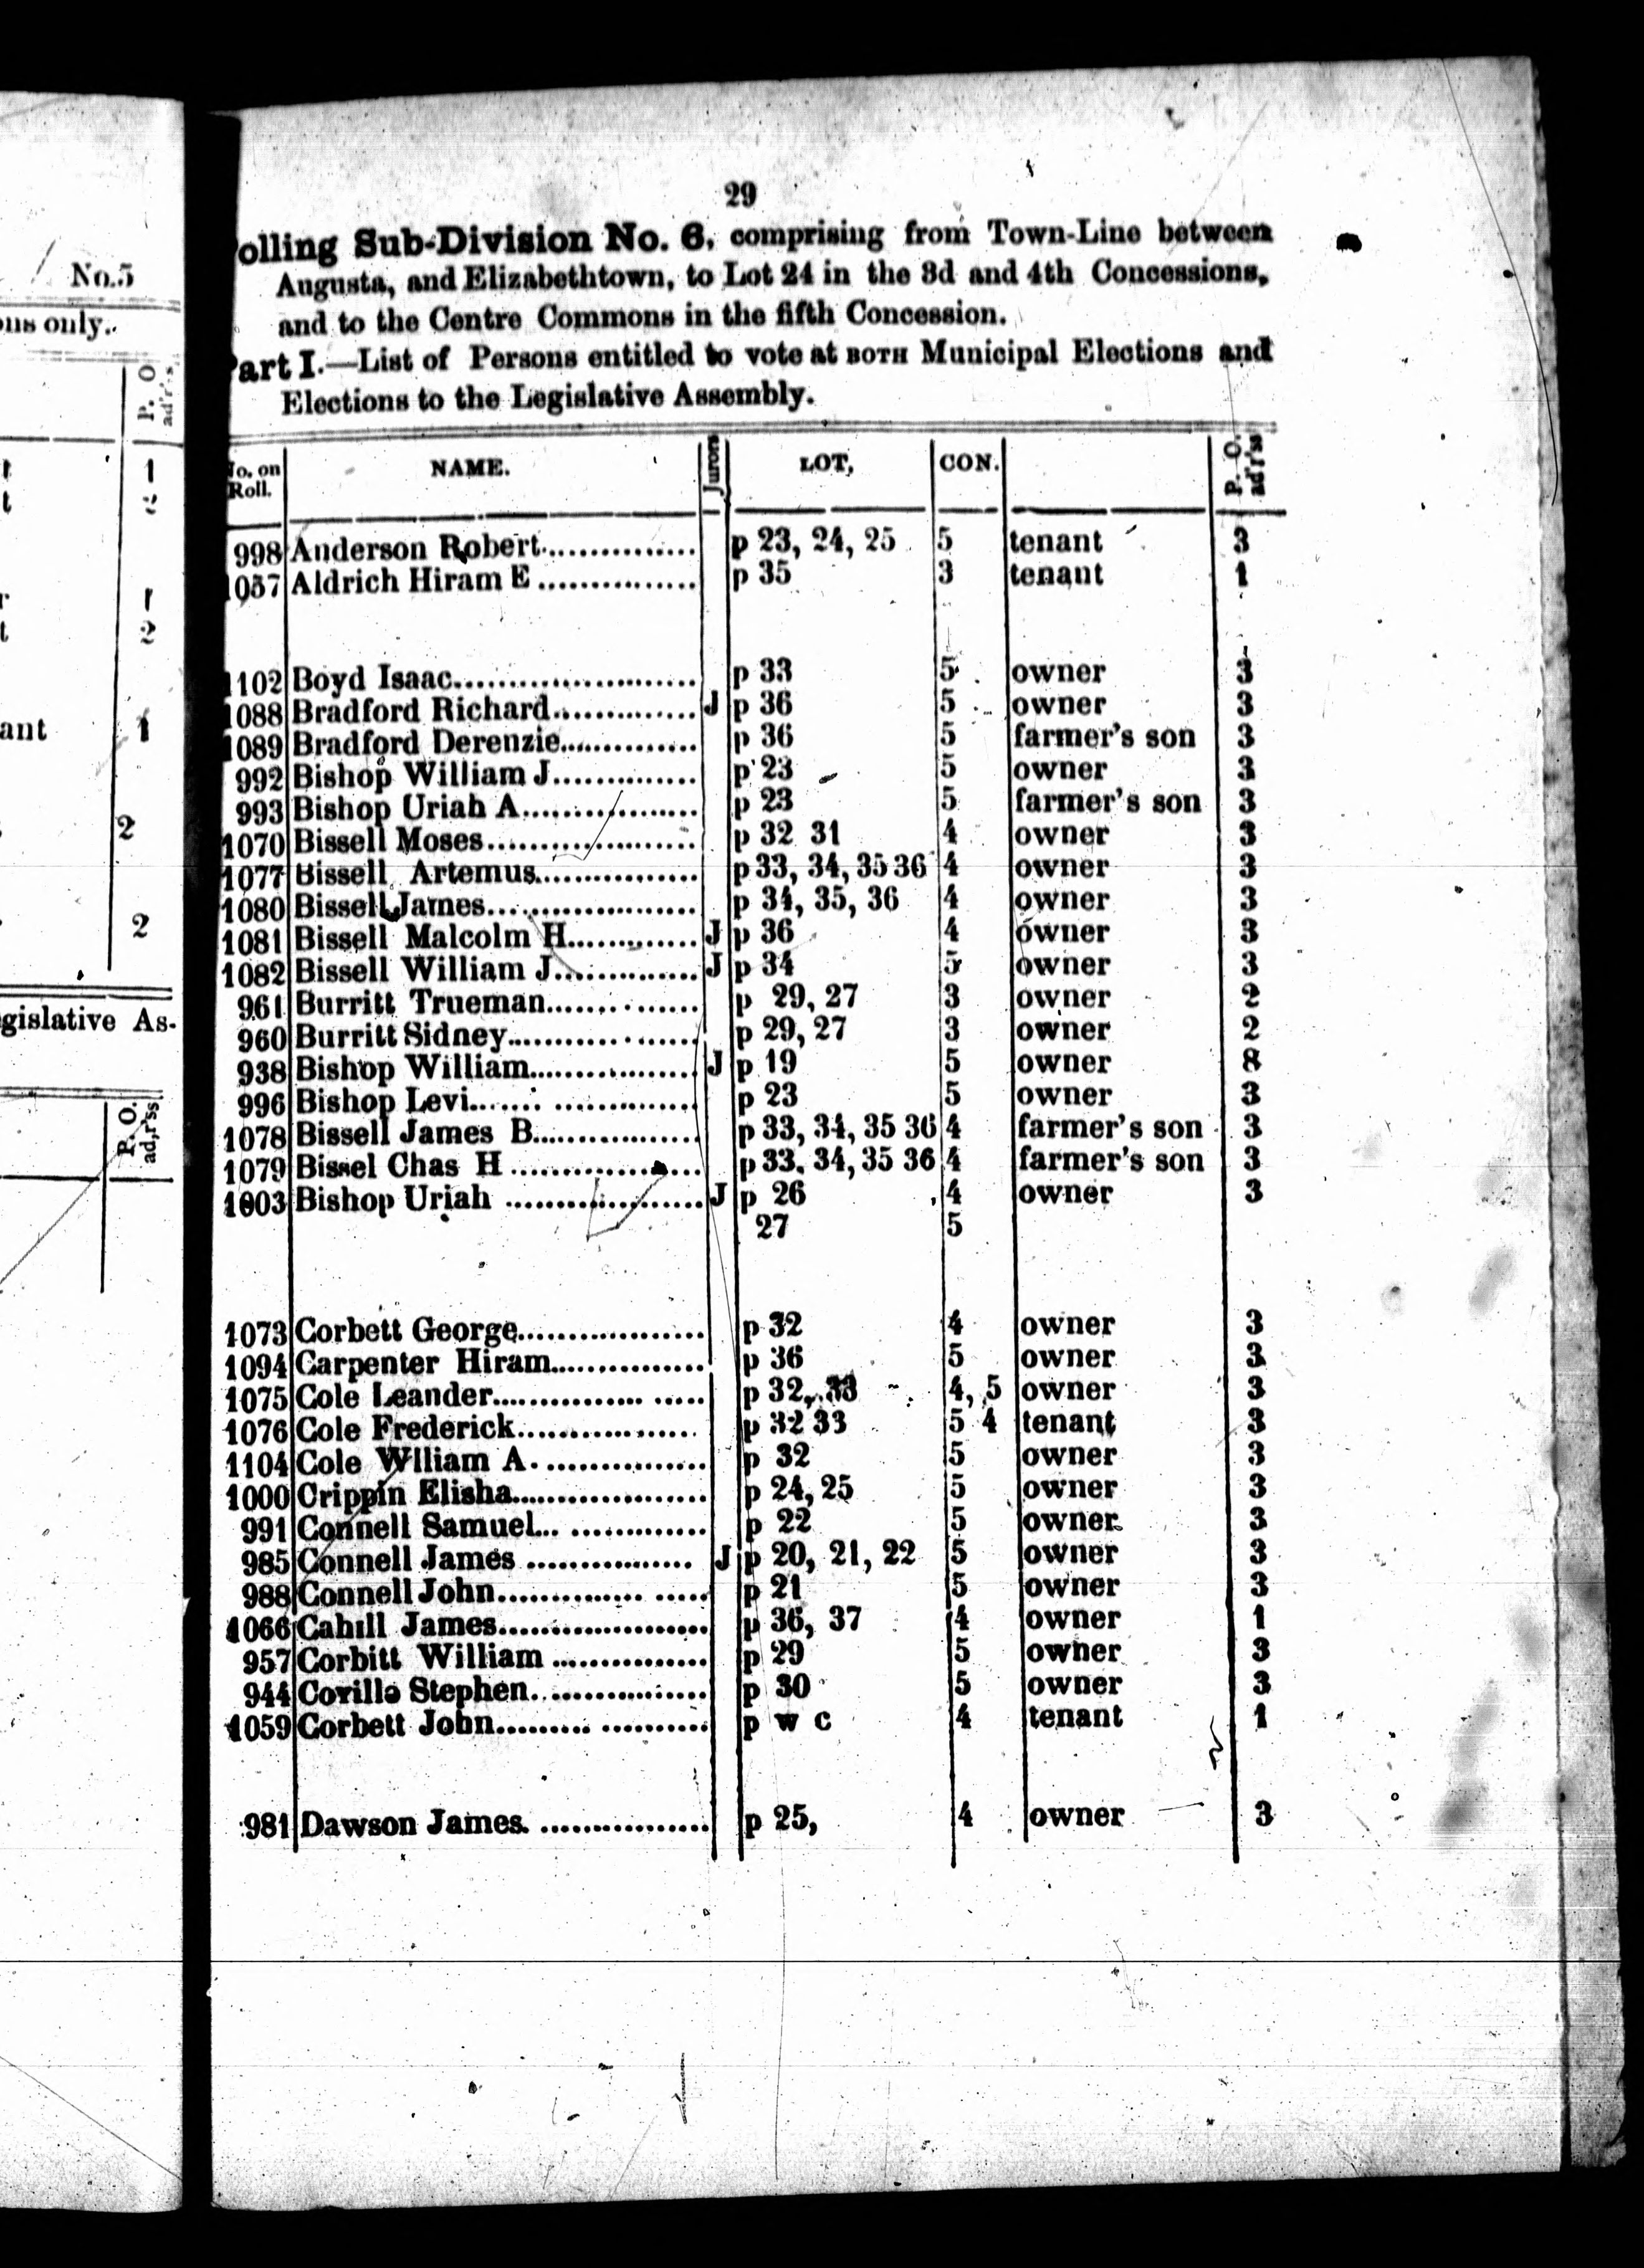 No.5
ons only.
P. O. ad'r's
1
2
1
2
ant 1
2
2
gislative As-
P. O. ad,r'ss
29
olling Sub-Division No. 6, comprising from Town-Line between
Augusta, and Elizabethtown, to Lot 24 in the 3d and 4th Concessions,
and to the Centre Commons in the fifth Concession.
art I.—List of Persons entitled to vote at BOTH Municipal Elections and
Elections to the Legislative Assembly.
No. on Roll. NAME. Jurors LOT, CON. P. O. ad'r's
998 Anderson Robert............... p 23, 24, 25 5 tenant 3
1057 Aldrich Hiram E ............... p 35 3 tenant 1
1102 Boyd Isaac........................ p 33 5 owner 3
1088 Bradford Richard.............. J p 36 5 owner 3
1089 Bradford Derenzie.............. p 36 5 farmer's son 3
992 Bishop William J.............. p 23 5 owner 3
993 Bishop Uriah A.................. p 23 5 farmer's son 3
1070 Bissell Moses..................... p 32 31 4 owner 3
1077 Bissell Artemus................. p 33, 34, 35 36 4 owner 3
1080 Bissell James..................... p 34, 35, 36 4 owner 3
1081 Bissell Malcolm H............. J p 36 4 owner 3
1082 Bissell William J.............. J p 34 5 owner 3
961 Burritt Trueman............... p 29, 27 3 owner 2
960 Burritt Sidney................... p 29, 27 3 owner 2
938 Bishop William................. J p 19 5 owner 8
996 Bishop Levi....... .............. p 23 5 owner 3
1078 Bissell James B................. p 33, 34, 35 36 4 farmer's son 3
1079 Bissel Chas H .................. p 33. 34, 35 36 4 farmer's son 3
1003 Bishop Uriah .................... J p 26 4 owner 3
27 5
1073 Corbett George................... p 32 4 owner 3
1094 Carpenter Hiram............... p 36 5 owner 3
1075 Cole Leander................ ..... p 32, 33 4, 5 owner 3
1076 Cole Frederick.................. p 32 33 5 4 tenant 3
1104 Cole Wlliam A. ................ p 32 5 owner 3
1000 Crippin Elisha.................... p 24, 25 5 owner 3
991 Connell Samuel... .............. p 22 5 owner 3
985 Connell James ................. J p 20, 21, 22 5 owner 3
988 Connell John............... ..... p 21 5 owner 3
1066 Cahill James...................... p 36, 37 4 owner 1
957 Corbitt William ................ p 29 5 owner 3
944 Coville Stephen.................. p 30 5 owner 3
1059 Corbett John.......... ........... p w c 4 tenant 1
981 Dawson James. ................. p 25, 4 owner 3